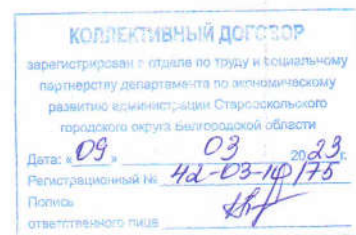 КОЛЛЕКТИВНЫЙ ДОГОВОР
зарегистрирован в отделе по труду и социальному
партнерству департамента по экономическому
развитию администрации Старооскольского
городского округа Белгородской области
Дата: «09» 03 2023г.
Регистрационный № 42-03-10/75
Подпись
ответственного лица